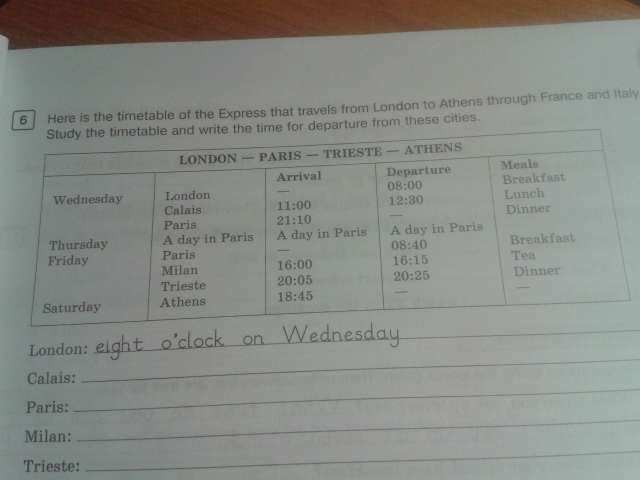 6 Here is the timetable of the Express that travels from London to Athens through France and Italy
Study the timetable and write the time for departure from these cities.
LONDON — PARIS — TRIESTE — ATHENS
Arrival Departure Meals
Wednesday London — 08:00 Breakfast
Calais 11:00 12:30 Lunch
Paris 21:10 — Dinner
Thursday A day in Paris A day in Paris A day in Paris
Friday Paris — 08:40 Breakfast
Milan 16:00 16:15 Tea
Trieste 20:05 20:25 Dinner
Saturday Athens 18:45 — —
London: eight o'clock on Wednesday
Calais:
Paris:
Milan:
Trieste: